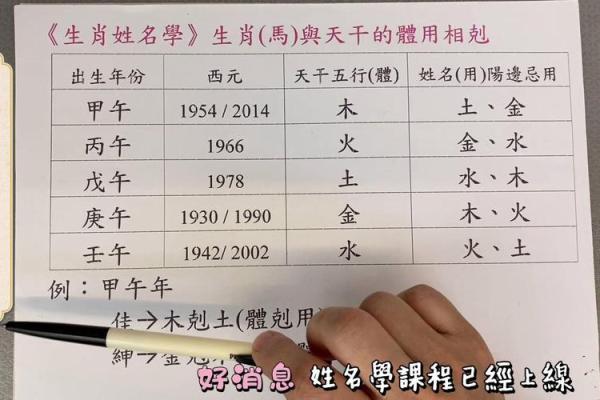 《生肖姓名學》生肖(馬)與天干的體用相剋
出生年份 西元 天干五行(體) 姓名(用)陽邊忌用
甲午 1954 / 2014 木 土、金
丙午 1966 火 金、水
戊午 1978 土 水、木
庚午 1930 / 1990 金 木、火
壬午 1942/ 2002 水 火、土
例：甲午年
佳→木剋土(體剋用
紳→金剋
好消息 姓名學課程已經上線